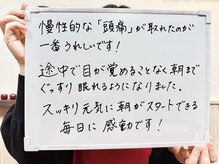 慢性的な「頭痛」が取れたのが
一番うれしいです！
途中で目が覚めることなく朝まで
ぐっすり眠れるようになりました。
スッキリ元気に朝がスタートできる
毎日に感動です！